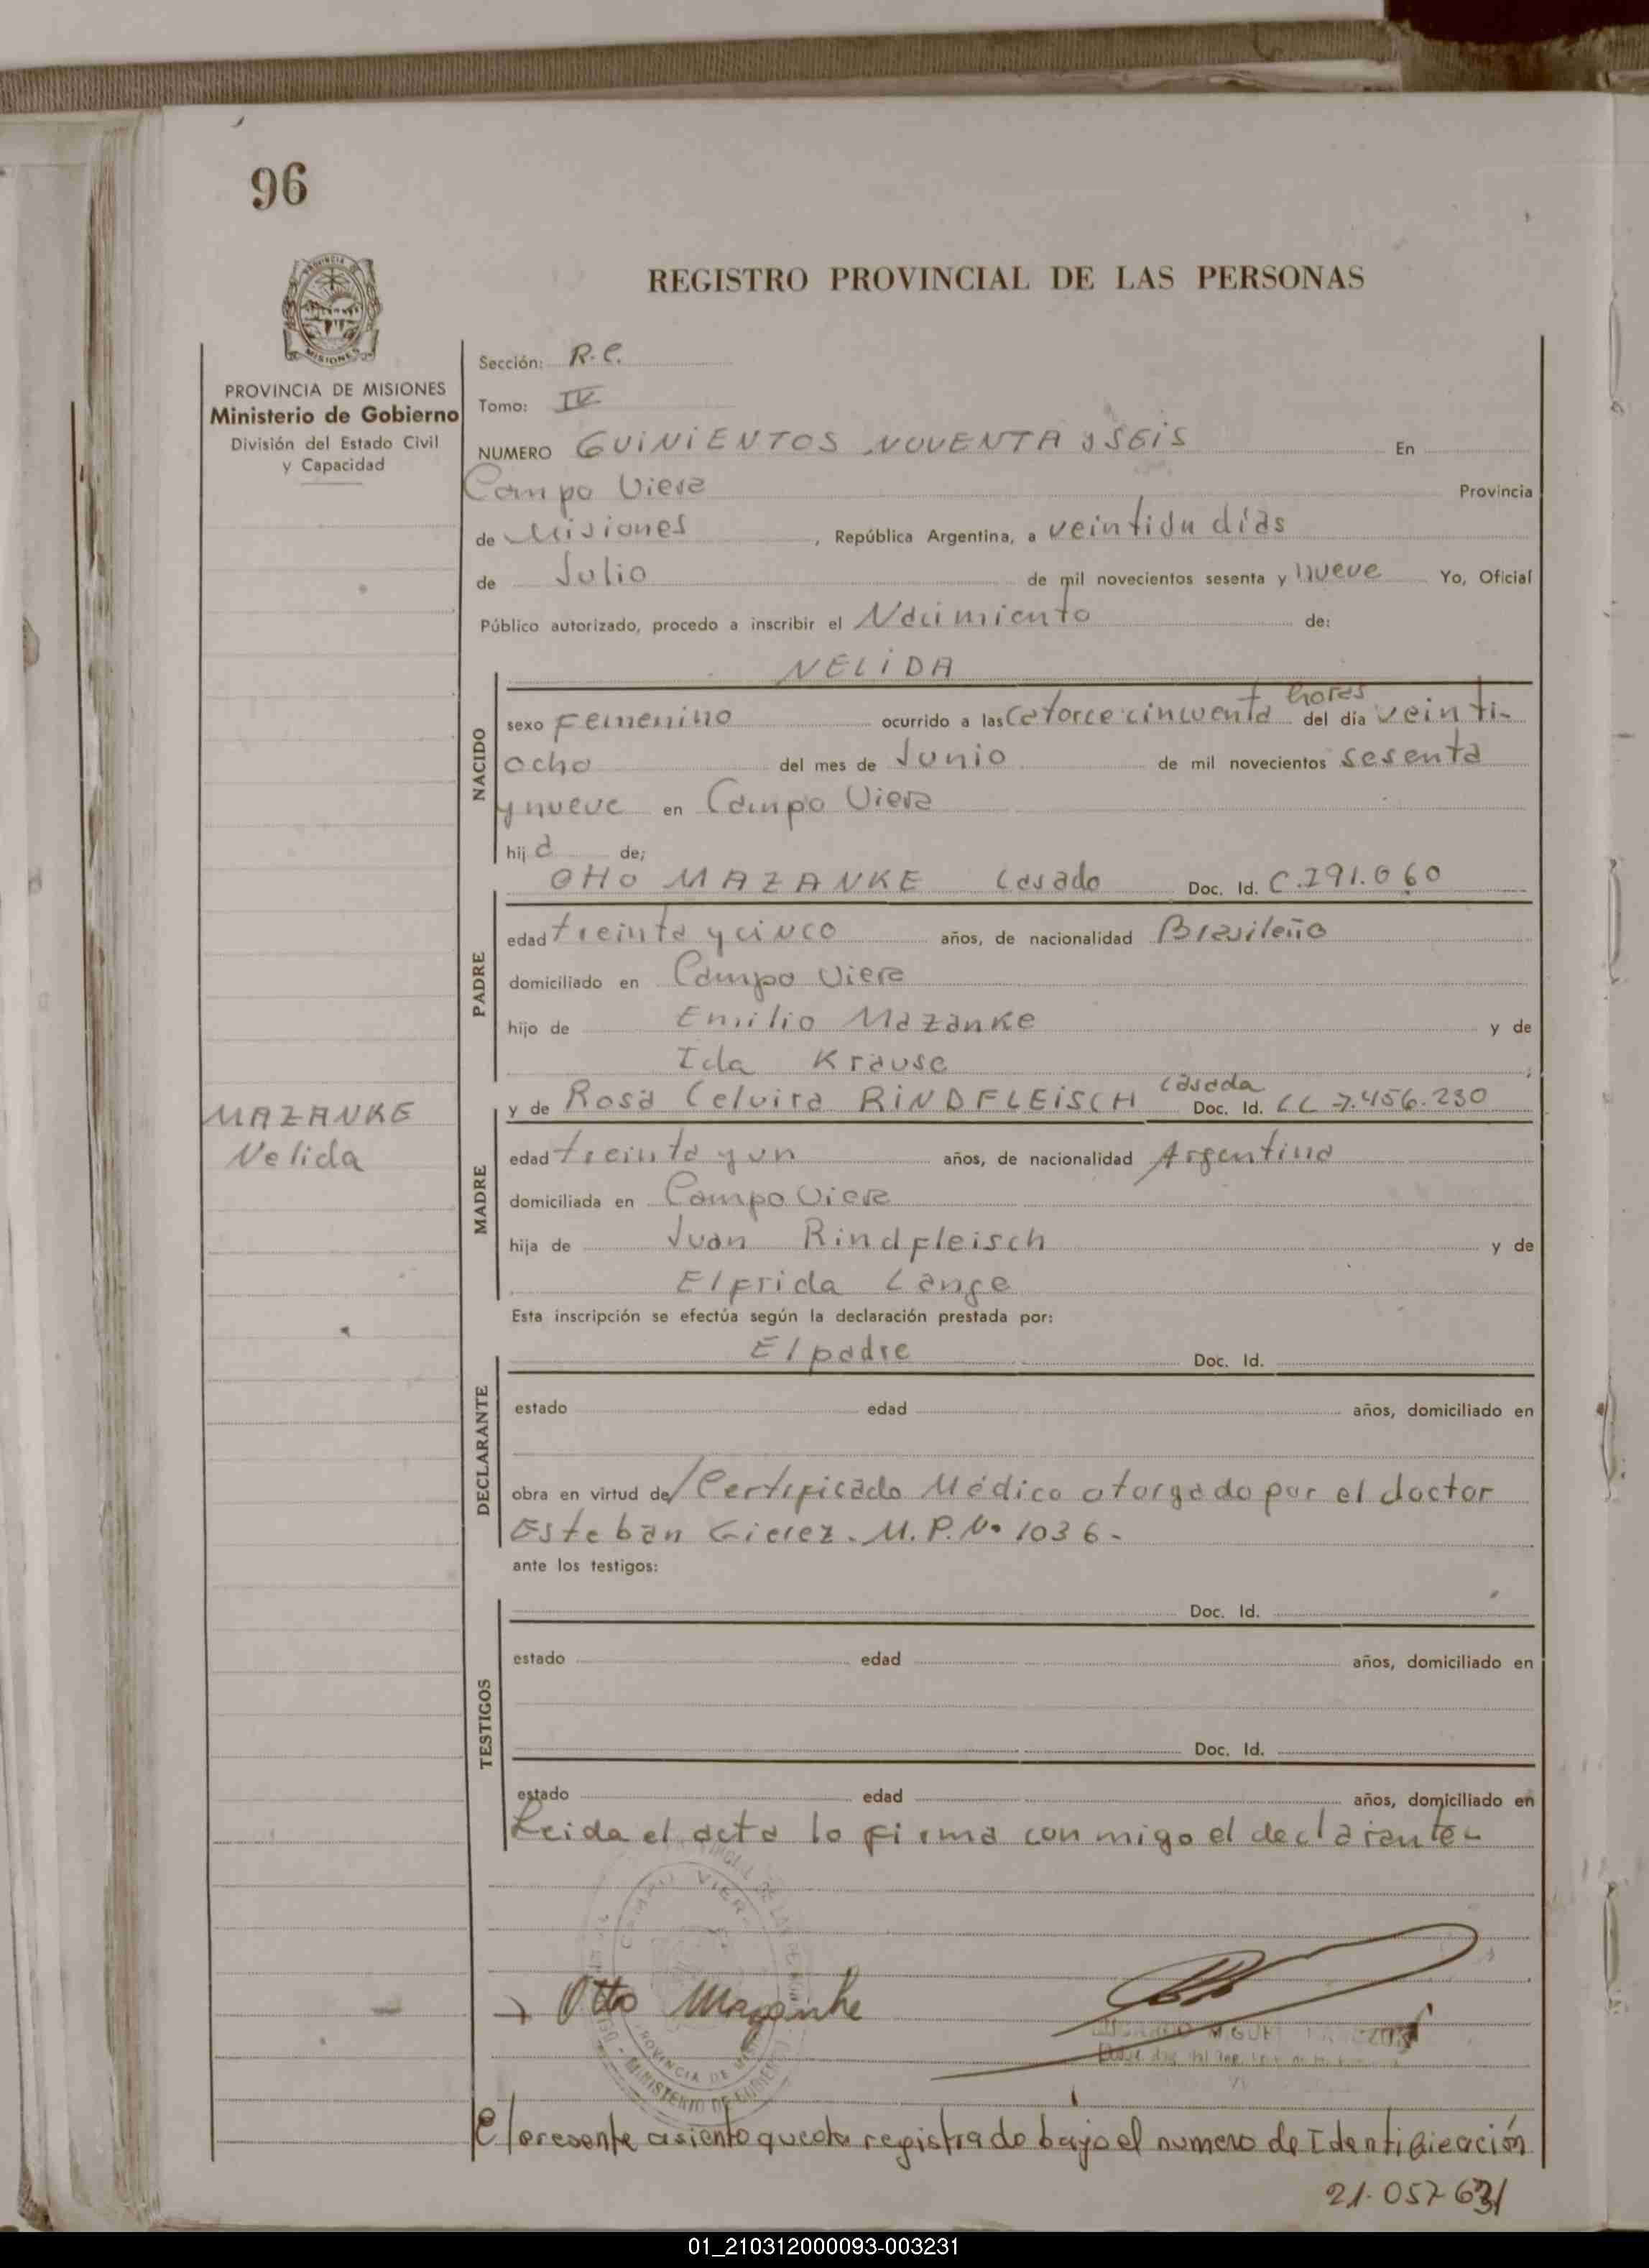 96
REGISTRO PROVINCIAL DE LAS PERSONAS
PROVINCIA DE MISIONES
Ministerio de Gobierno
División del Estado Civil
y Capacidad
Sección: R.C.
Tomo: IV
NUMERO QUINIENTOS NOVENTA y SEIS En
Campo Viera Provincia
de Misiones, República Argentina, a veintiun días
de Julio de mil novecientos sesenta y nueve Yo, Oficial
Público autorizado, procedo a inscribir el Nacimiento de:
NELIDA
NACIDO
horas
sexo Femenino ocurrido a las catorce cincuenta del día veinti-
ocho del mes de Junio de mil novecientos sesenta
y nueve en Campo Viera
hija de;
OTTO MAZANKE Casado Doc. Id. C.291.060
PADRE
edad treinta y cinco años, de nacionalidad Brasileño
domiciliado en Campo Viera
hijo de Emilio Mazanke y de
Ida Krause
MAZANKE
Nelida
casada
y de Rosa Celvira RINDFLEISCH Doc. Id. LC 7.456.230
MADRE
edad treinta y un años, de nacionalidad Argentina
domiciliada en Campo Viera
hija de Juan Rindfleisch y de
Elfrida Lange
Esta inscripción se efectúa según la declaración prestada por:
El padre Doc. Id.
DECLARANTE
estado edad años, domiciliado en
obra en virtud de/ Certificado Médico otorgado por el doctor
Esteban M.P.Nº 1036-
ante los testigos:
Doc. Id.
TESTIGOS
estado edad años, domiciliado en
Doc. Id.
estado edad años, domiciliado en
Leida el acta lo firma con migo el declarante-
Otto Mazanke
CAMPO VIERA
PROVINCIA DE MISIONES
MINISTERIO DE GOBIERNO
El presente asiento queda registrado bajo el numero de Identificación
21.057.631
01_210312000093-003231